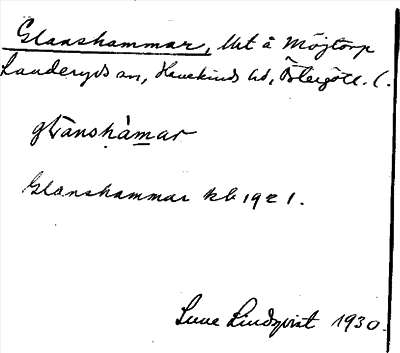 Glanshammar, lht å Möjtorp
Landeryds sn, Hanekinds hd, Östergötl. l.
glànshàmar
Glanshammar kb 1921.
Sune Lindqvist 1930.